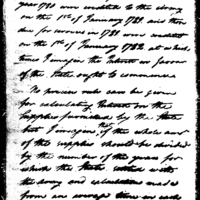 year 1780 were credited to the army
on the 1st of January 1781 and those
due for services in 1781 were credited
on the 1st of January 1782 at which
times I imagine the Interest in favour
of the State ought to commence
No precise rule can be given
for calculating Interest on the
supplies furnished by the State
but I imagine that the whole amt
of the supplies should be divided
by the number of the years for
which the State credits with
the army and calculations made
from an average then in each